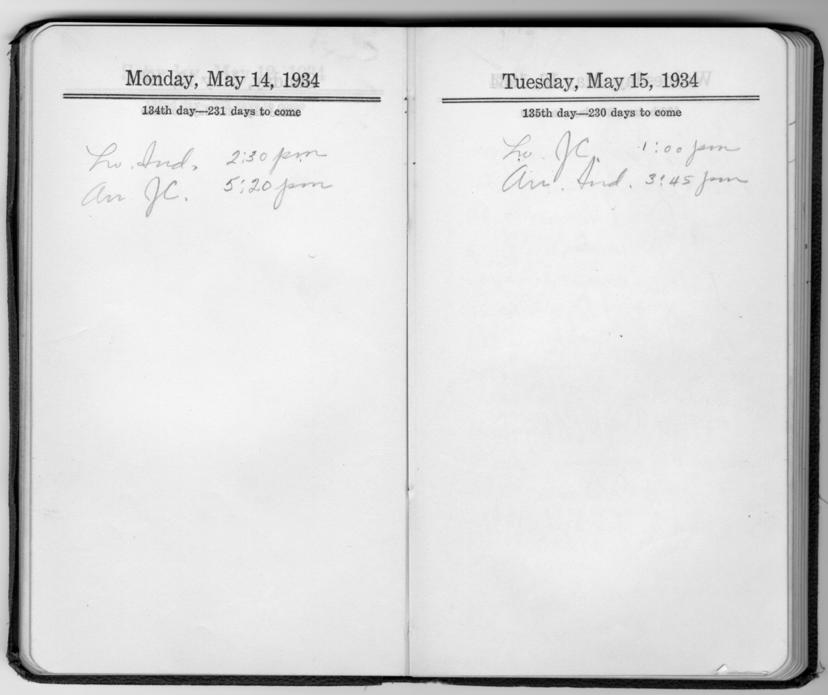 Monday, May 14, 1934
134th day—231 days to come
Lv. Ind. 2:30 pm
Arr JC. 5:20 pm
Tuesday, May 15, 1934
135th day—230 days to come
Lv. JC. 1:00 pm
Arr. Ind. 3:45 pm